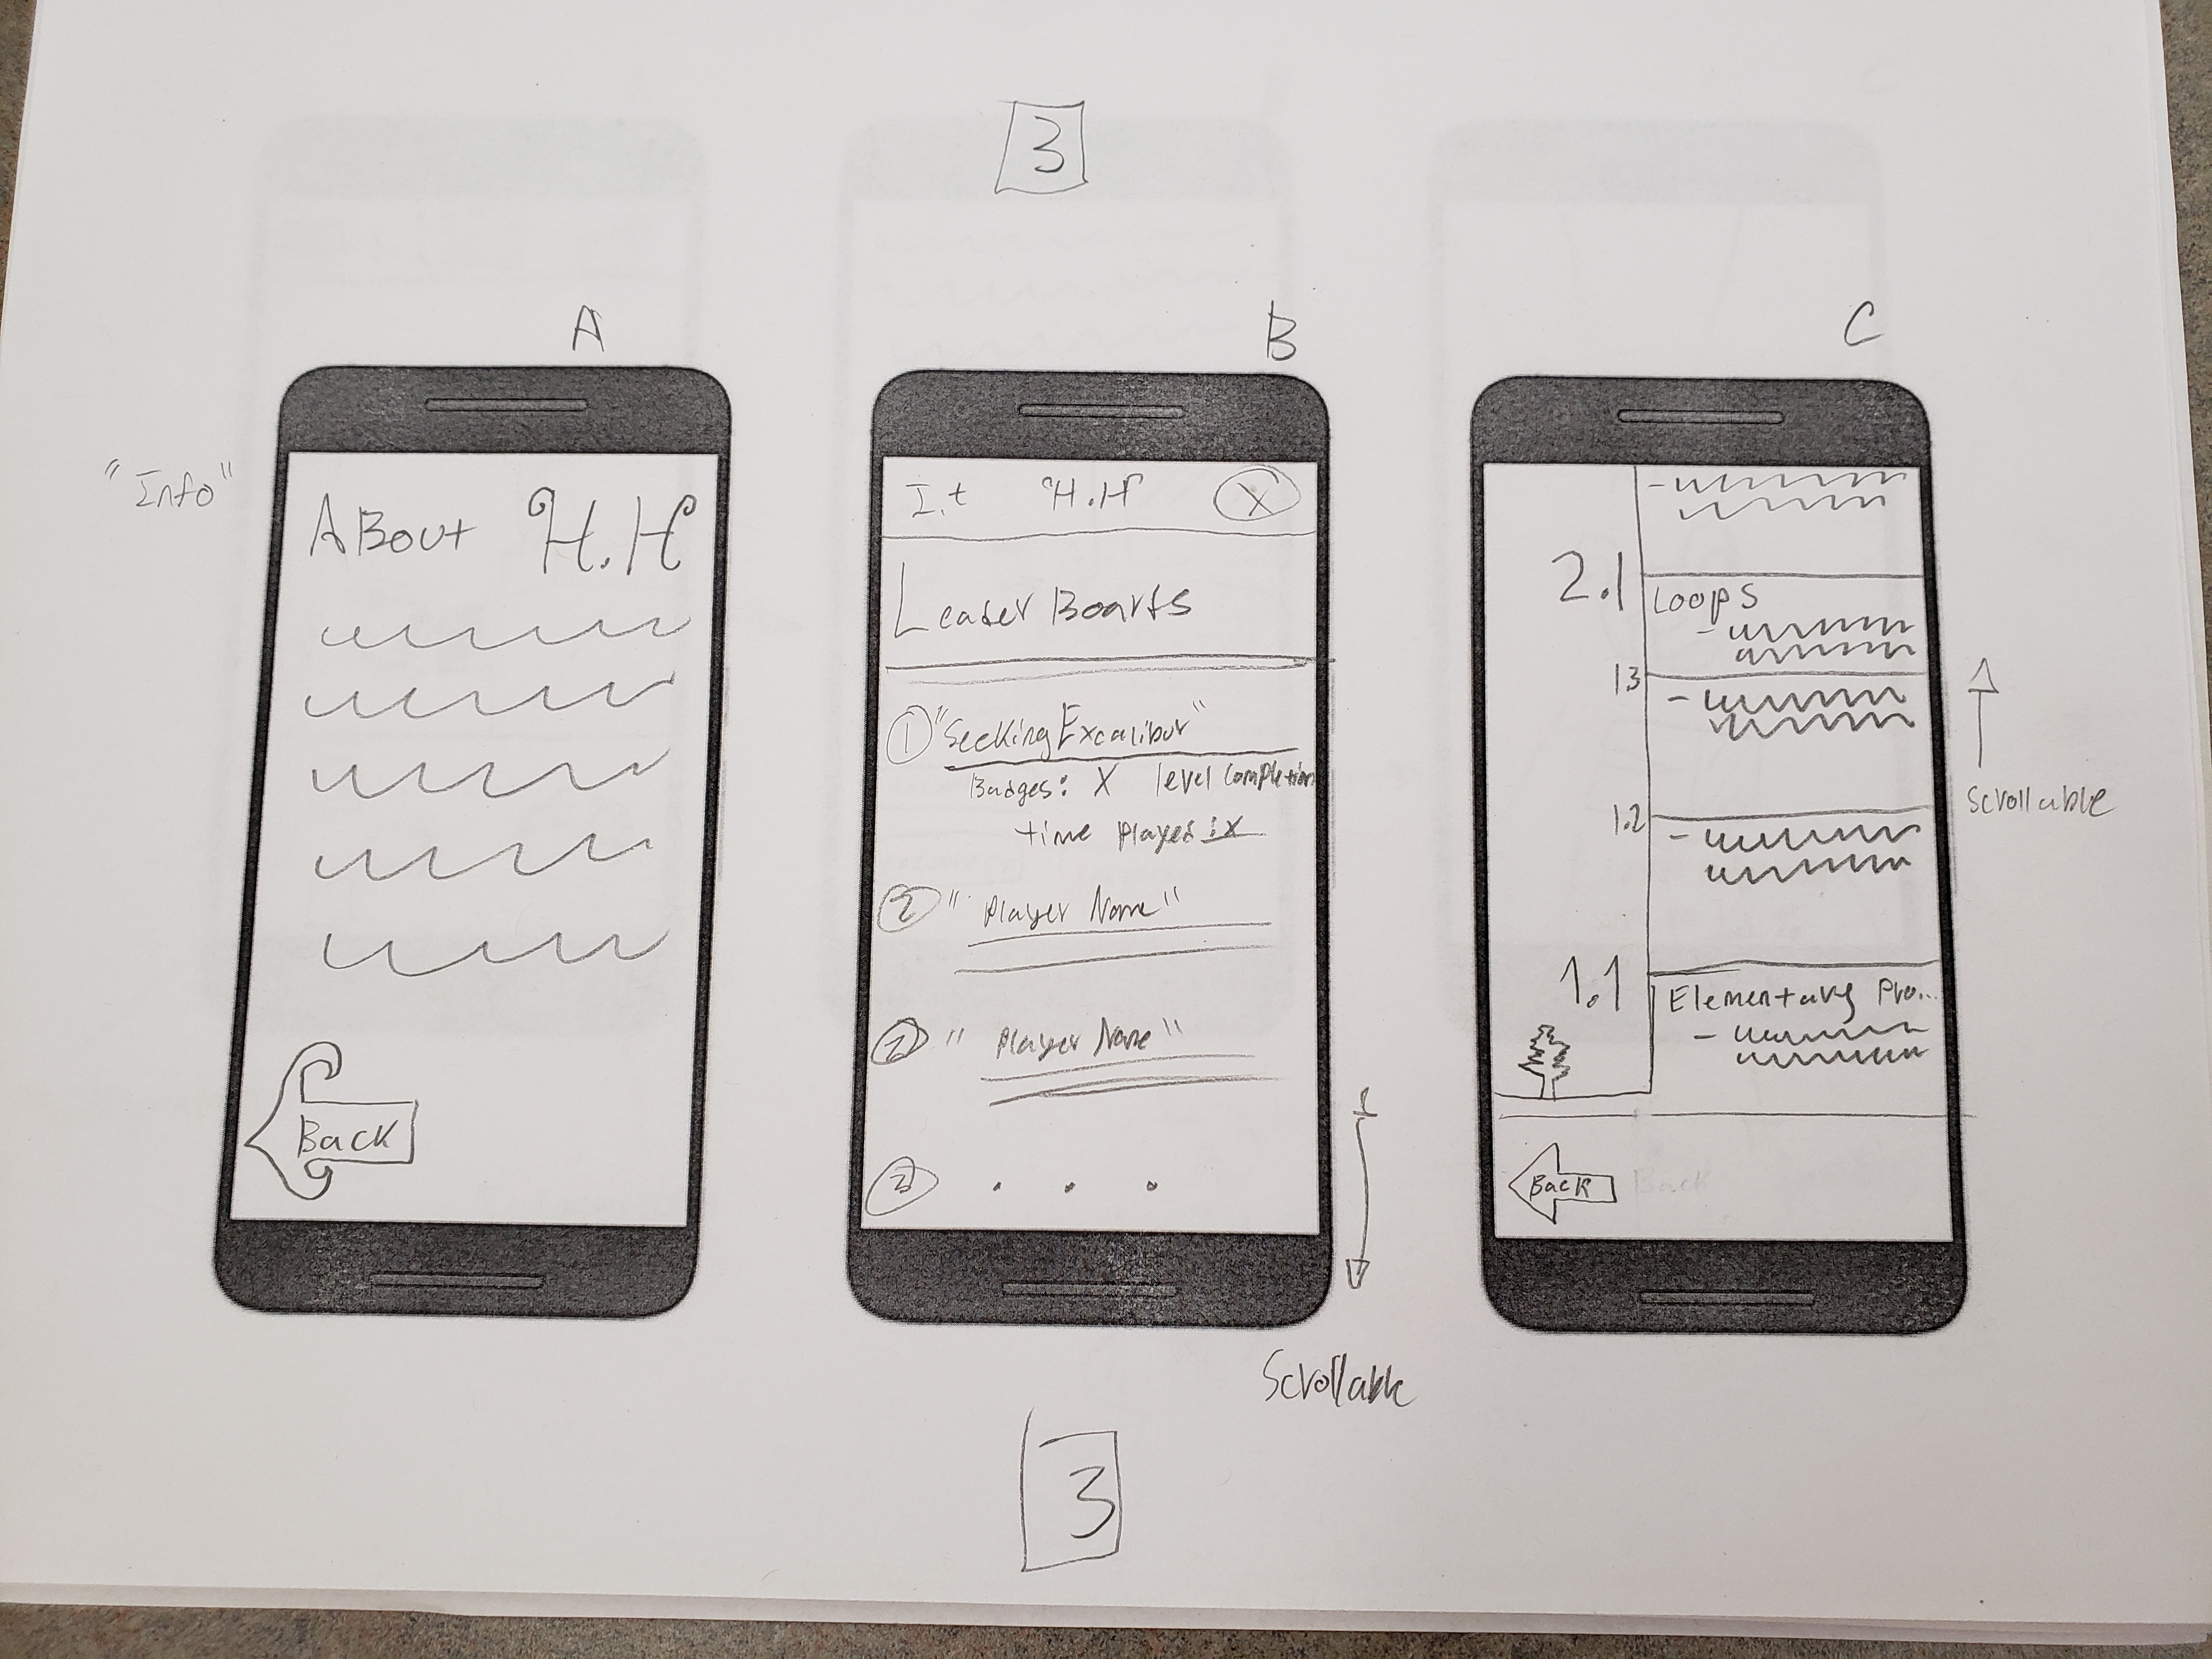 3
A
"Info"
About H.H
Back
B
I.t H.H X
LeaderBoards
1 "SeekingExcalibur"
Badges: X level Completion
time Played: X
2 "Player Name"
2 "Player Name"
2 . . .
Scrollable
C
2.1 Loops
1.3
1.2
1.1 Elementary Pro...
Back
Back
Scrollable
3